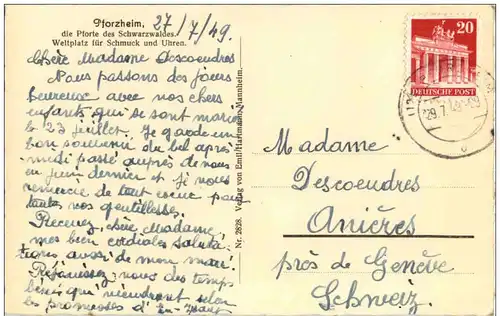 Pforzheim, 27/7/49.
die Pforte des Schwarzwaldes
Weltplatz für Schmuck und Uhren.
Chère Madame Descoendres
Nous passons des jours
heureux avec nos chers
enfants qui se sont mariés
le 23 juillet. Je garde un
bon souvenir du bel après
midi passé auprès de nous
en juin dernier et je vous
remercie de tout coeur pour
toutes vos gentillesses.
Recevez, chère Madame,
mes bien cordiales saluta
tions aussi de mon mari.
Réjouissez-nous des temps
bénis qui viendront selon
les promesses d'En-Haut
Nr. 2828. Verlag von Emil Hartmann, Mannheim.
20
DEUTSCHE POST
29.7.49
Madame
Descoendres
Anières
près de Genève
Schweiz.